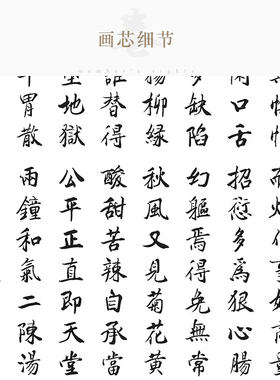 画芯细节
口舌 招愆多爲狠心腸
缺陷 幻軀焉得免無常
楊柳緑 秋風又見菊花黃
誰替得 酸甜苦辣自承當
地獄 公平正直即天堂
胃散 兩鐘和氣二陳湯